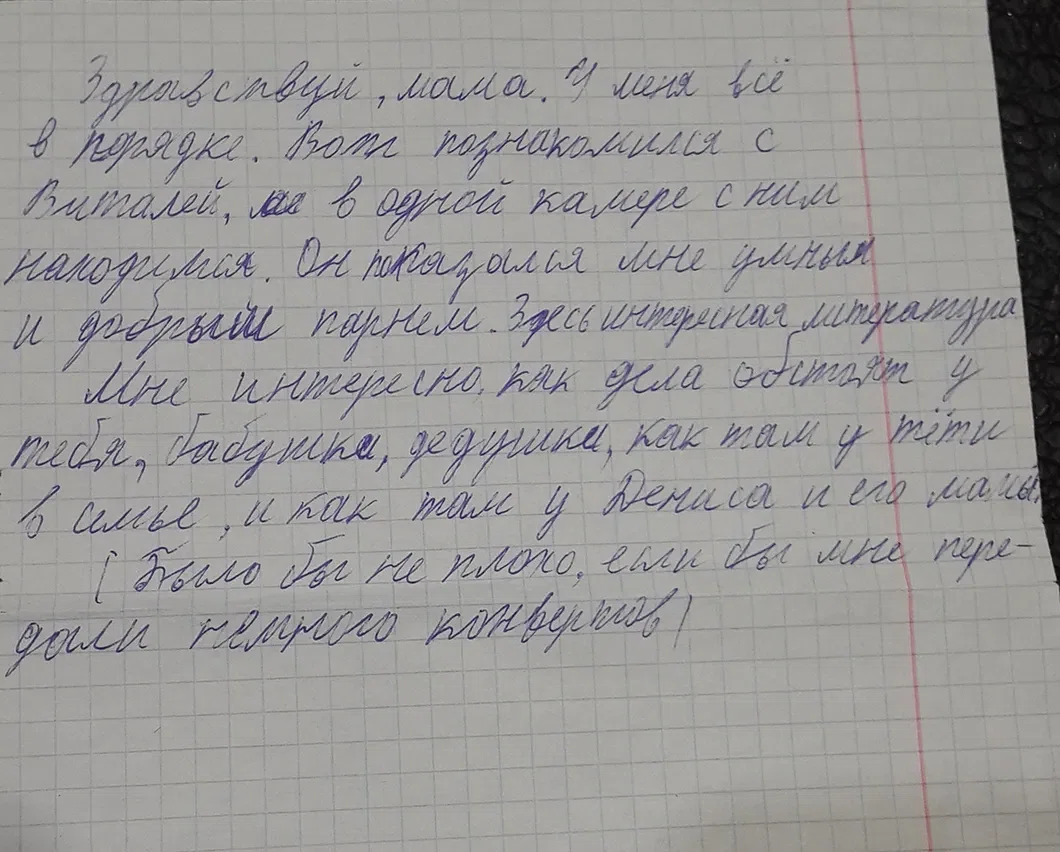 Здравствуй, мама. У меня всё
в порядке. Вот познакомился с
Виталей, мы в одной камере с ним
находимся. Он показался мне умным
и добрым парнем. Здесь интересная литература
Мне интересно, как дела обстоят у
тебя, бабушки, дедушки, как там у тёти
в семье, и как там у Дениса и его мамы.
(Было бы не плохо, если бы мне пере-
дали немного конвертов)